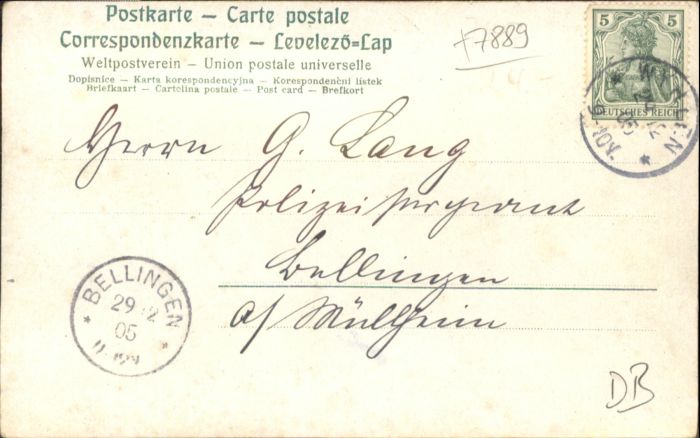 Postkarte – Carte postale
Correspondenzkarte – Levelező-Lap
Weltpostverein – Union postale universelle
Dopisnice – Karta korespondencyjna – Korespondenční lístek
Briefkaart – Cartolina postale – Post card – Brefkort
+7889
5 5
DEUTSCHES REICH
Herrn G. Lang
Polizeisergeant
Bellingen
a/ Müllheim
BELLINGEN
29 12
05
DB